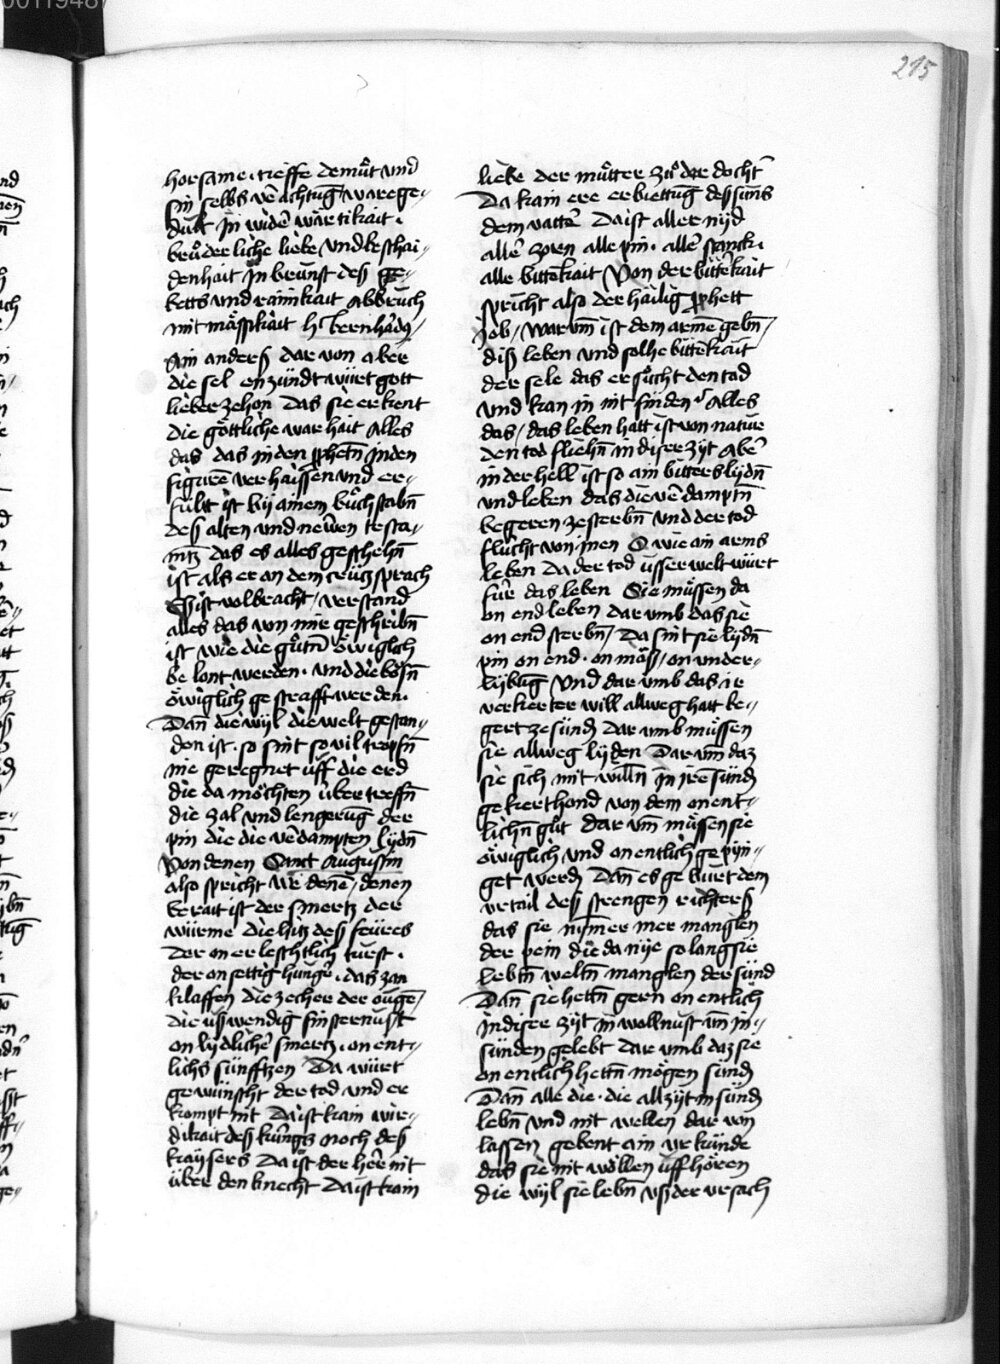 215
horsame · tieffe demuͦt vnd
sin selbs v̄achtūg / warege-
dult In widē wärtikait ·
bruͦderliche liebe vnd beschai-
denhait In brunst deß ge-
betts vnd rainikait Abbruch
mit mässikait h̄ bernhardꝯ /
Ain anders dar von aber
die sel enzündt würt gott
lieber zehon Das sie erkent
die göttliche warhait Alles
das das in den ꝓphetn̄ in den
figurē verhaissen vnd er-
fült ist bÿ ainem buͦchstabn̄
deß alten vnd newen testa-
mtz das es alles geschehn̄
ist als er an dem crütz sprach
Eß ist volbracht / verstand
alles das von mir geschribn̄
ist wie die guͦtn̄ öwiglich
belont werden · vnd die bösn̄
öwiglich gestrafft werden ·
Dan̄ die wÿl die welt gestan-
den ist · so sint so vil tropfn̄
nie geregnet vff die erd
die da möchten übertreffn̄
die zal vnd lengerūg der
pin die die v̄dampten lÿdn̄
Von denen Sanct Augustin
also spricht we denē / denen
berait ist der smertz der
würme die hitz deß feüres
Der onerleschtlich turst ·
der onsettig hungē · das zan
klaffen die zecher der ougē /
die vßwendig finsternust
on lÿdlichē smertz · onent-
lichs sünfftzen Da würt
gewünscht der tod vnd er
kompt nit Da ist kain wir-
dikait deß künigs noch deß
kaÿsers Da ist der herr nit
über den knecht Da ist kain
liebe der muͦtter zuͦ der docht̄
Da kain ere erbiettūg deß suns
dem vattē Da ist aller nÿd
allē zoren alle pin · allē stanck ·
alle bittrkait Von der bittrkait
spricht also der hailig ꝓphett
Job / warvm̄ ist dem armē gebn̄ /
diß leben vnd solhe bittrkait
der sele das er suͦcht den tod
vnd kan in nit finden Alles
das / das leben hatt ist von natur
den tod fliehn̄ in diser zÿt Abē
in der hell ist so ain bitters lÿdn̄
vnd leben das die v̄damptn̄
begeren zesterbn̄ vnd der tod
flücht von inen O wie ain arms
leben Da der tod usser welt würt
für das leben Sie müssen da
on end leben dar vmb das sie
on end sterbn̄ / Da sint sie lÿdn̄
pin on end · on mäß / on vnder-
lÿbūg Vnd dar vmb das ir
verkerter will allweg hatt be-
gert ze sünd̄ Dar vmb müssen
sie allweg lÿden Dar vm̄ daz
sie sich mit willn̄ In ire sünd̄
gekiert hond von dem onent-
lichn̄ guͦt Dar vm̄ müssen sie
öwiglich vnd onentlich gepÿn-
get werd̄ Dan̄ es gebürt dem
vrtail deß strengen richters
das sie nimer mer manglen
der pein die da nÿe so lang sie
lebtn̄ weltn̄ manglen der sünd
Dan̄ sie hettn̄ gern onentlich
in diser zÿt in wollnust vn̄ in-
sünden gelebt Dar vmb daz sie
onentlich hettn̄ mögen sünd̄
Dan̄ alle die · die allzÿt in sünd̄
lebn̄ vnd nit wellen dar von
lassen gebent ain vrkünde
das sie nit wöllen vffhören
die wÿl sie lebn̄ vß der vrsach